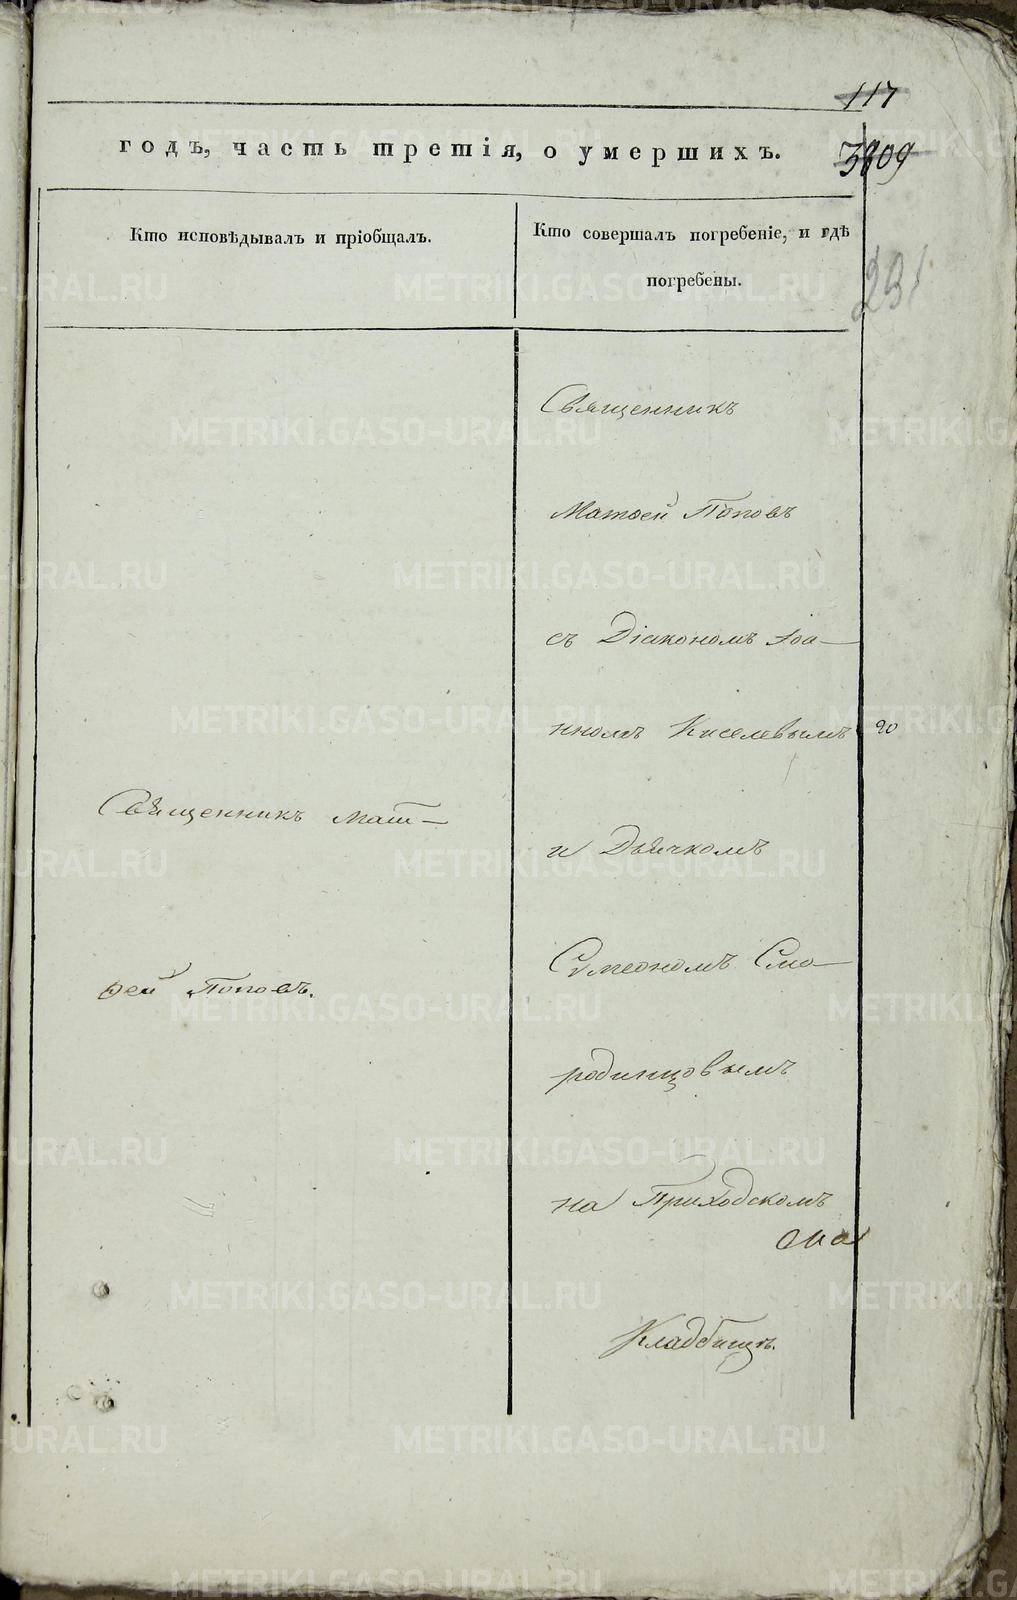 117
годъ, часть третія, о умершихъ.
3809
Кто исповѣдывалъ и пріобщалъ.
Кто совершалъ погребеніе, и гдѣ
погребены.
231
Священникъ Мат-
ѳей Поповъ.
Священникъ
Матѳей Поповъ
съ Діакономъ Іоа-
нномъ Киселевымъ
20
и Дьячкомъ
Сѵмеономъ Смо-
родинцовымъ
на Приходскомъ
Кладбищѣ.
METRIKI.GASO-URAL.RU